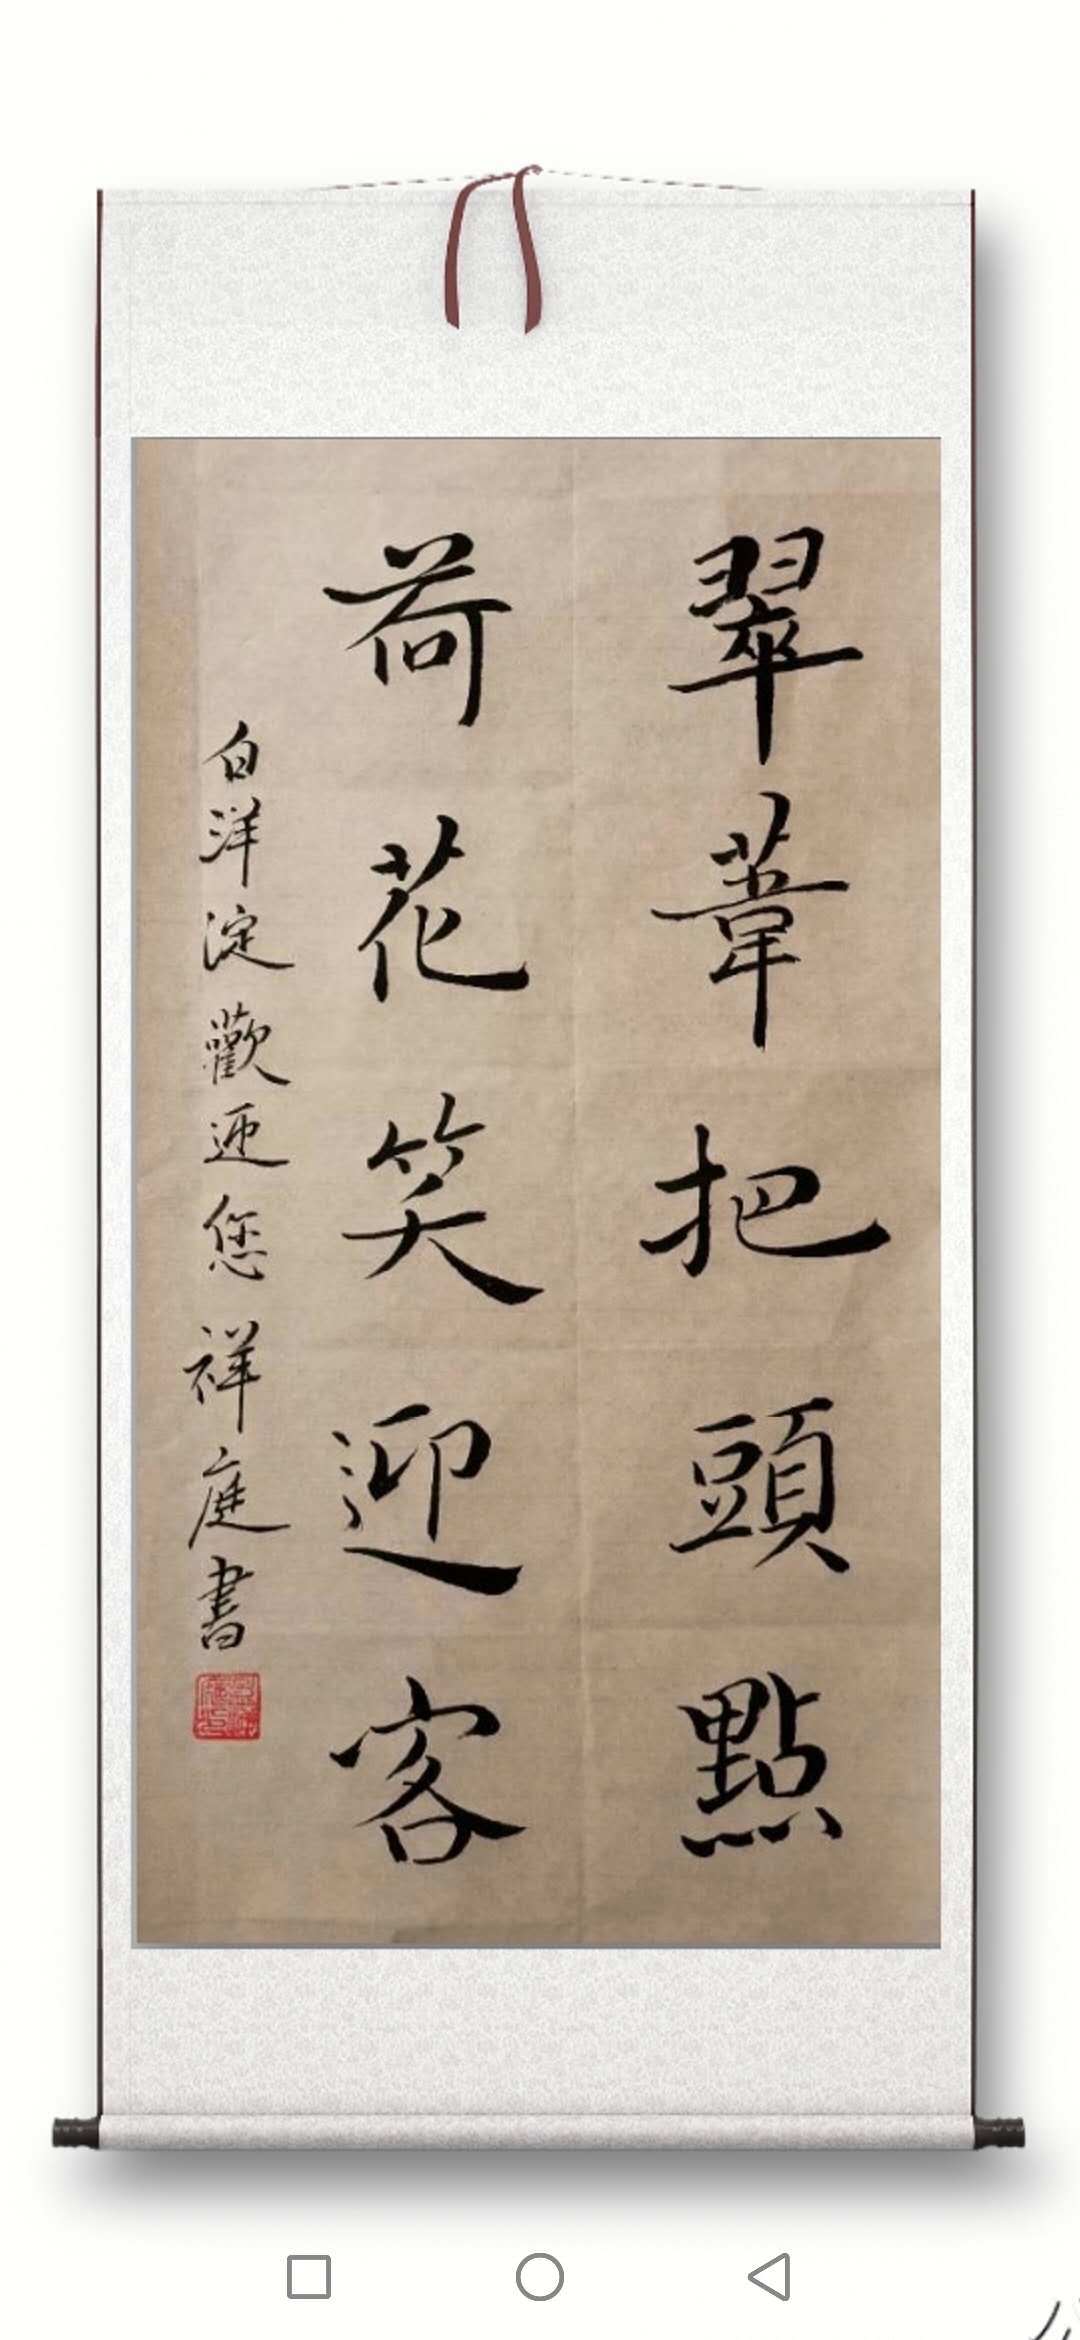 翠葦把頭點
荷花笑迎客
白洋淀歡迎您祥庭書